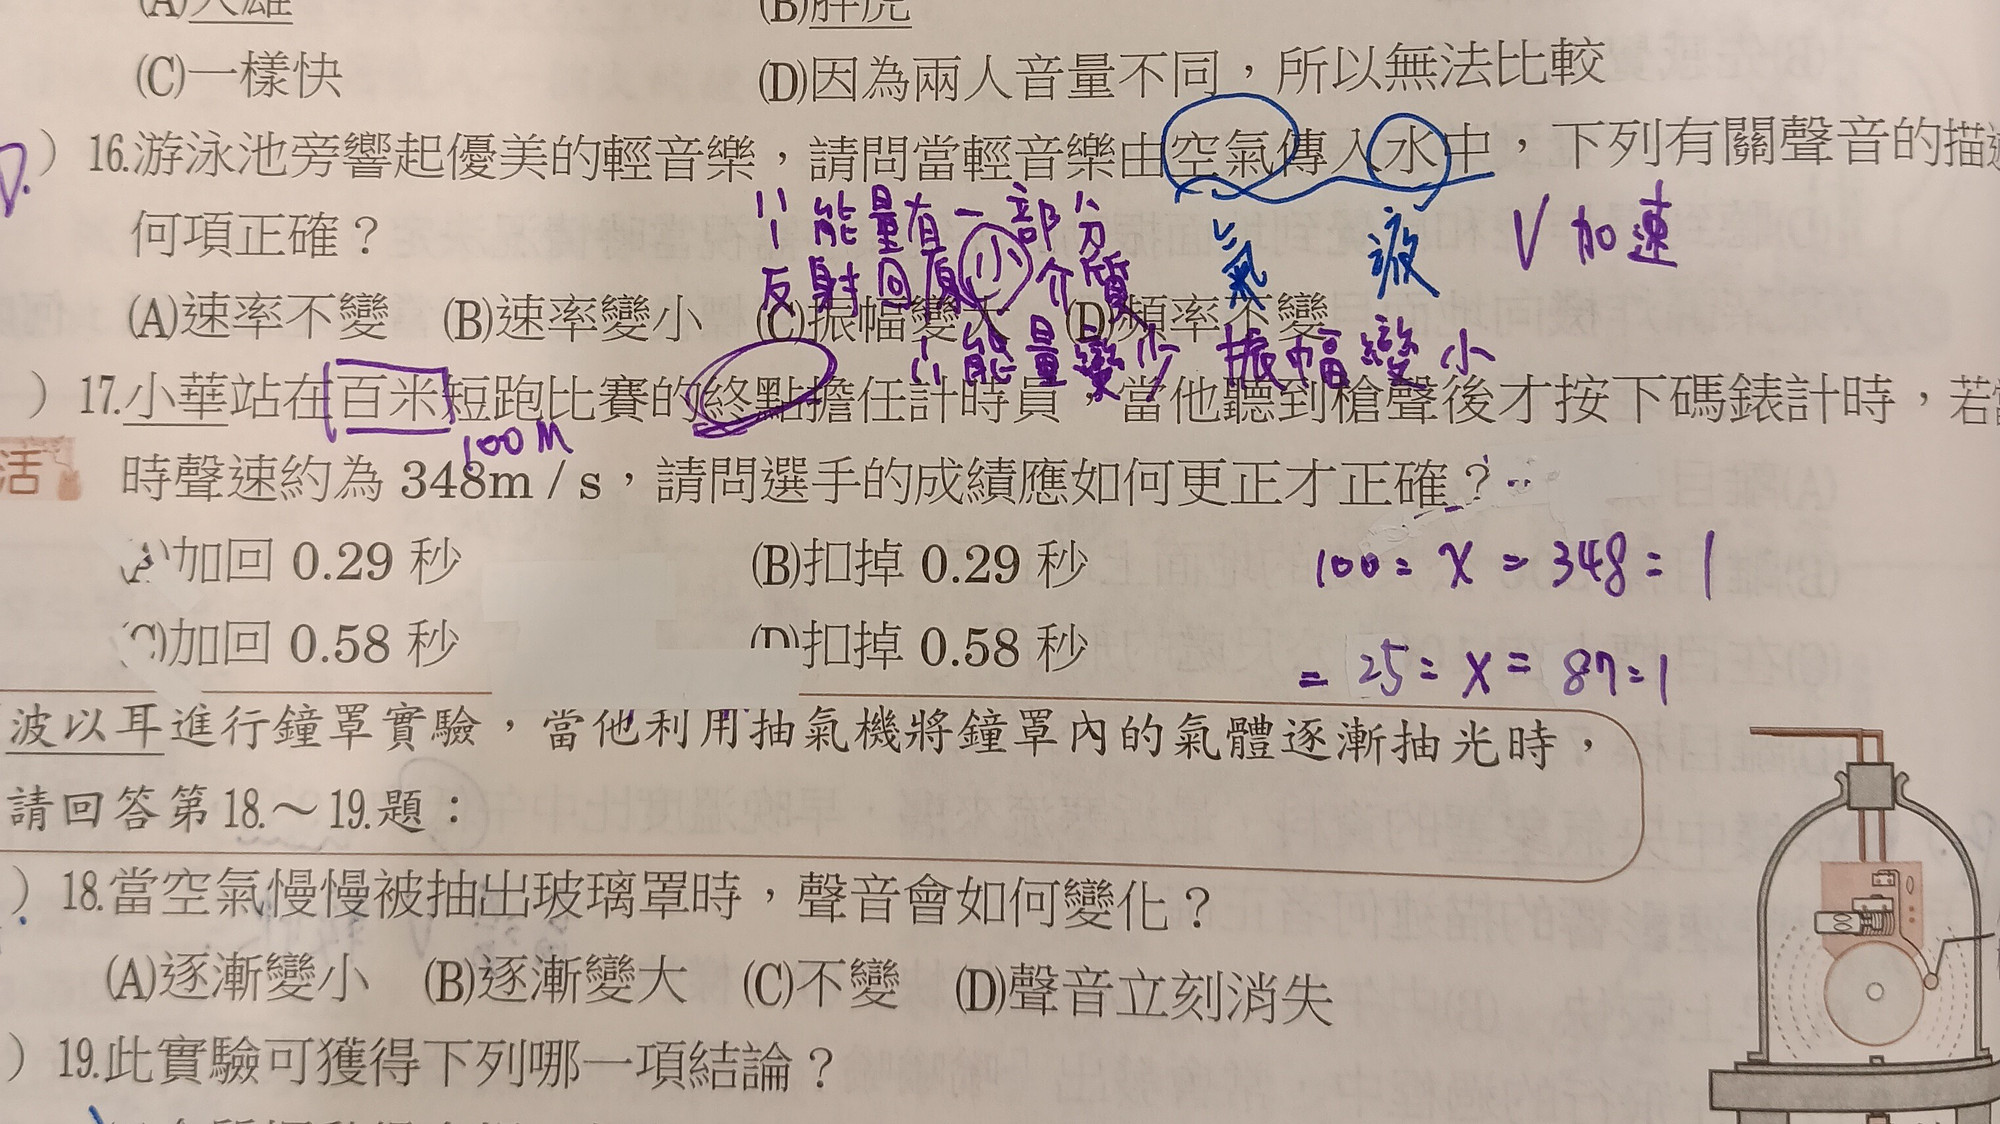 (C)一樣快
(D)因為兩人音量不同，所以無法比較
D.
)16.游泳池旁響起優美的輕音樂，請問當輕音樂由空氣傳入水中，下列有關聲音的描述
何項正確？
∵能量有一部分
反射回原介質
氣 液
V加速
(A)速率不變 (B)速率變小 (C)振幅變大 (D)頻率不變
∴能量變少 振幅變小
)17.小華站在百米短跑比賽的終點擔任計時員，當他聽到槍聲後才按下碼錶計時，若當
100M
活
時聲速約為 348m / s，請問選手的成績應如何更正才正確？
(A)加回 0.29 秒 (B)扣掉 0.29 秒
100：x = 348：1
(C)加回 0.58 秒 (D)扣掉 0.58 秒
= 25：x = 87：1
波以耳進行鐘罩實驗，當他利用抽氣機將鐘罩內的氣體逐漸抽光時，
請回答第18.～19.題：
)18.當空氣慢慢被抽出玻璃罩時，聲音會如何變化？
(A)逐漸變小 (B)逐漸變大 (C)不變 (D)聲音立刻消失
)19.此實驗可獲得下列哪一項結論？